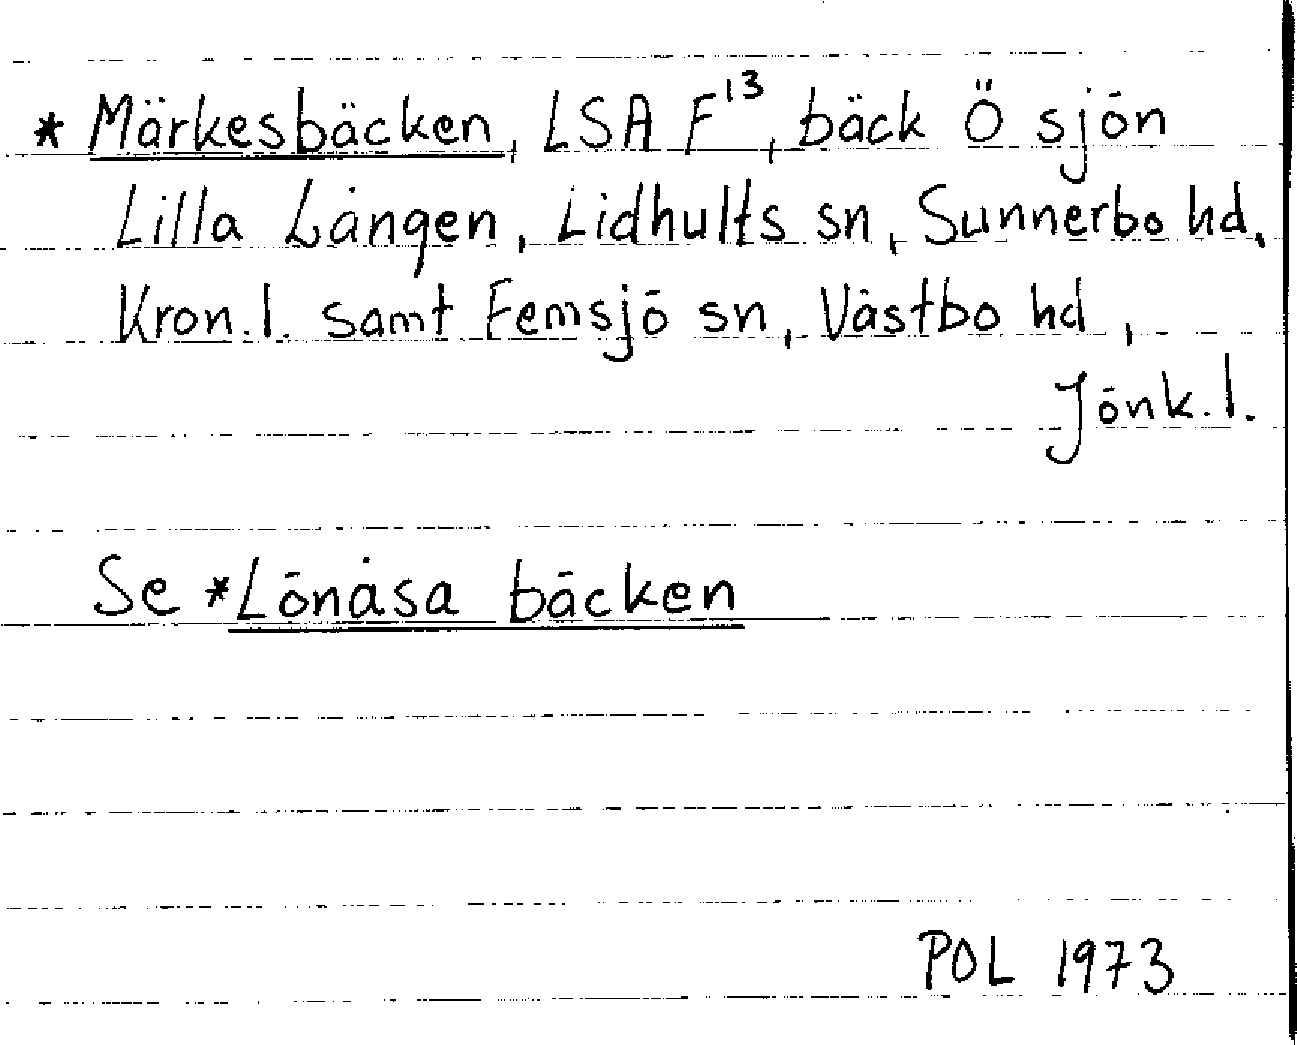 * Märkesbäcken, LSA F¹³, bäck Ö sjön
Lilla Lången, Lidhults sn, Sunnerbo hd,
Kron.l. samt Femsjö sn, Västbo hd,
Jönk.l.
Se *Lönåsa bäcken
POL 1973